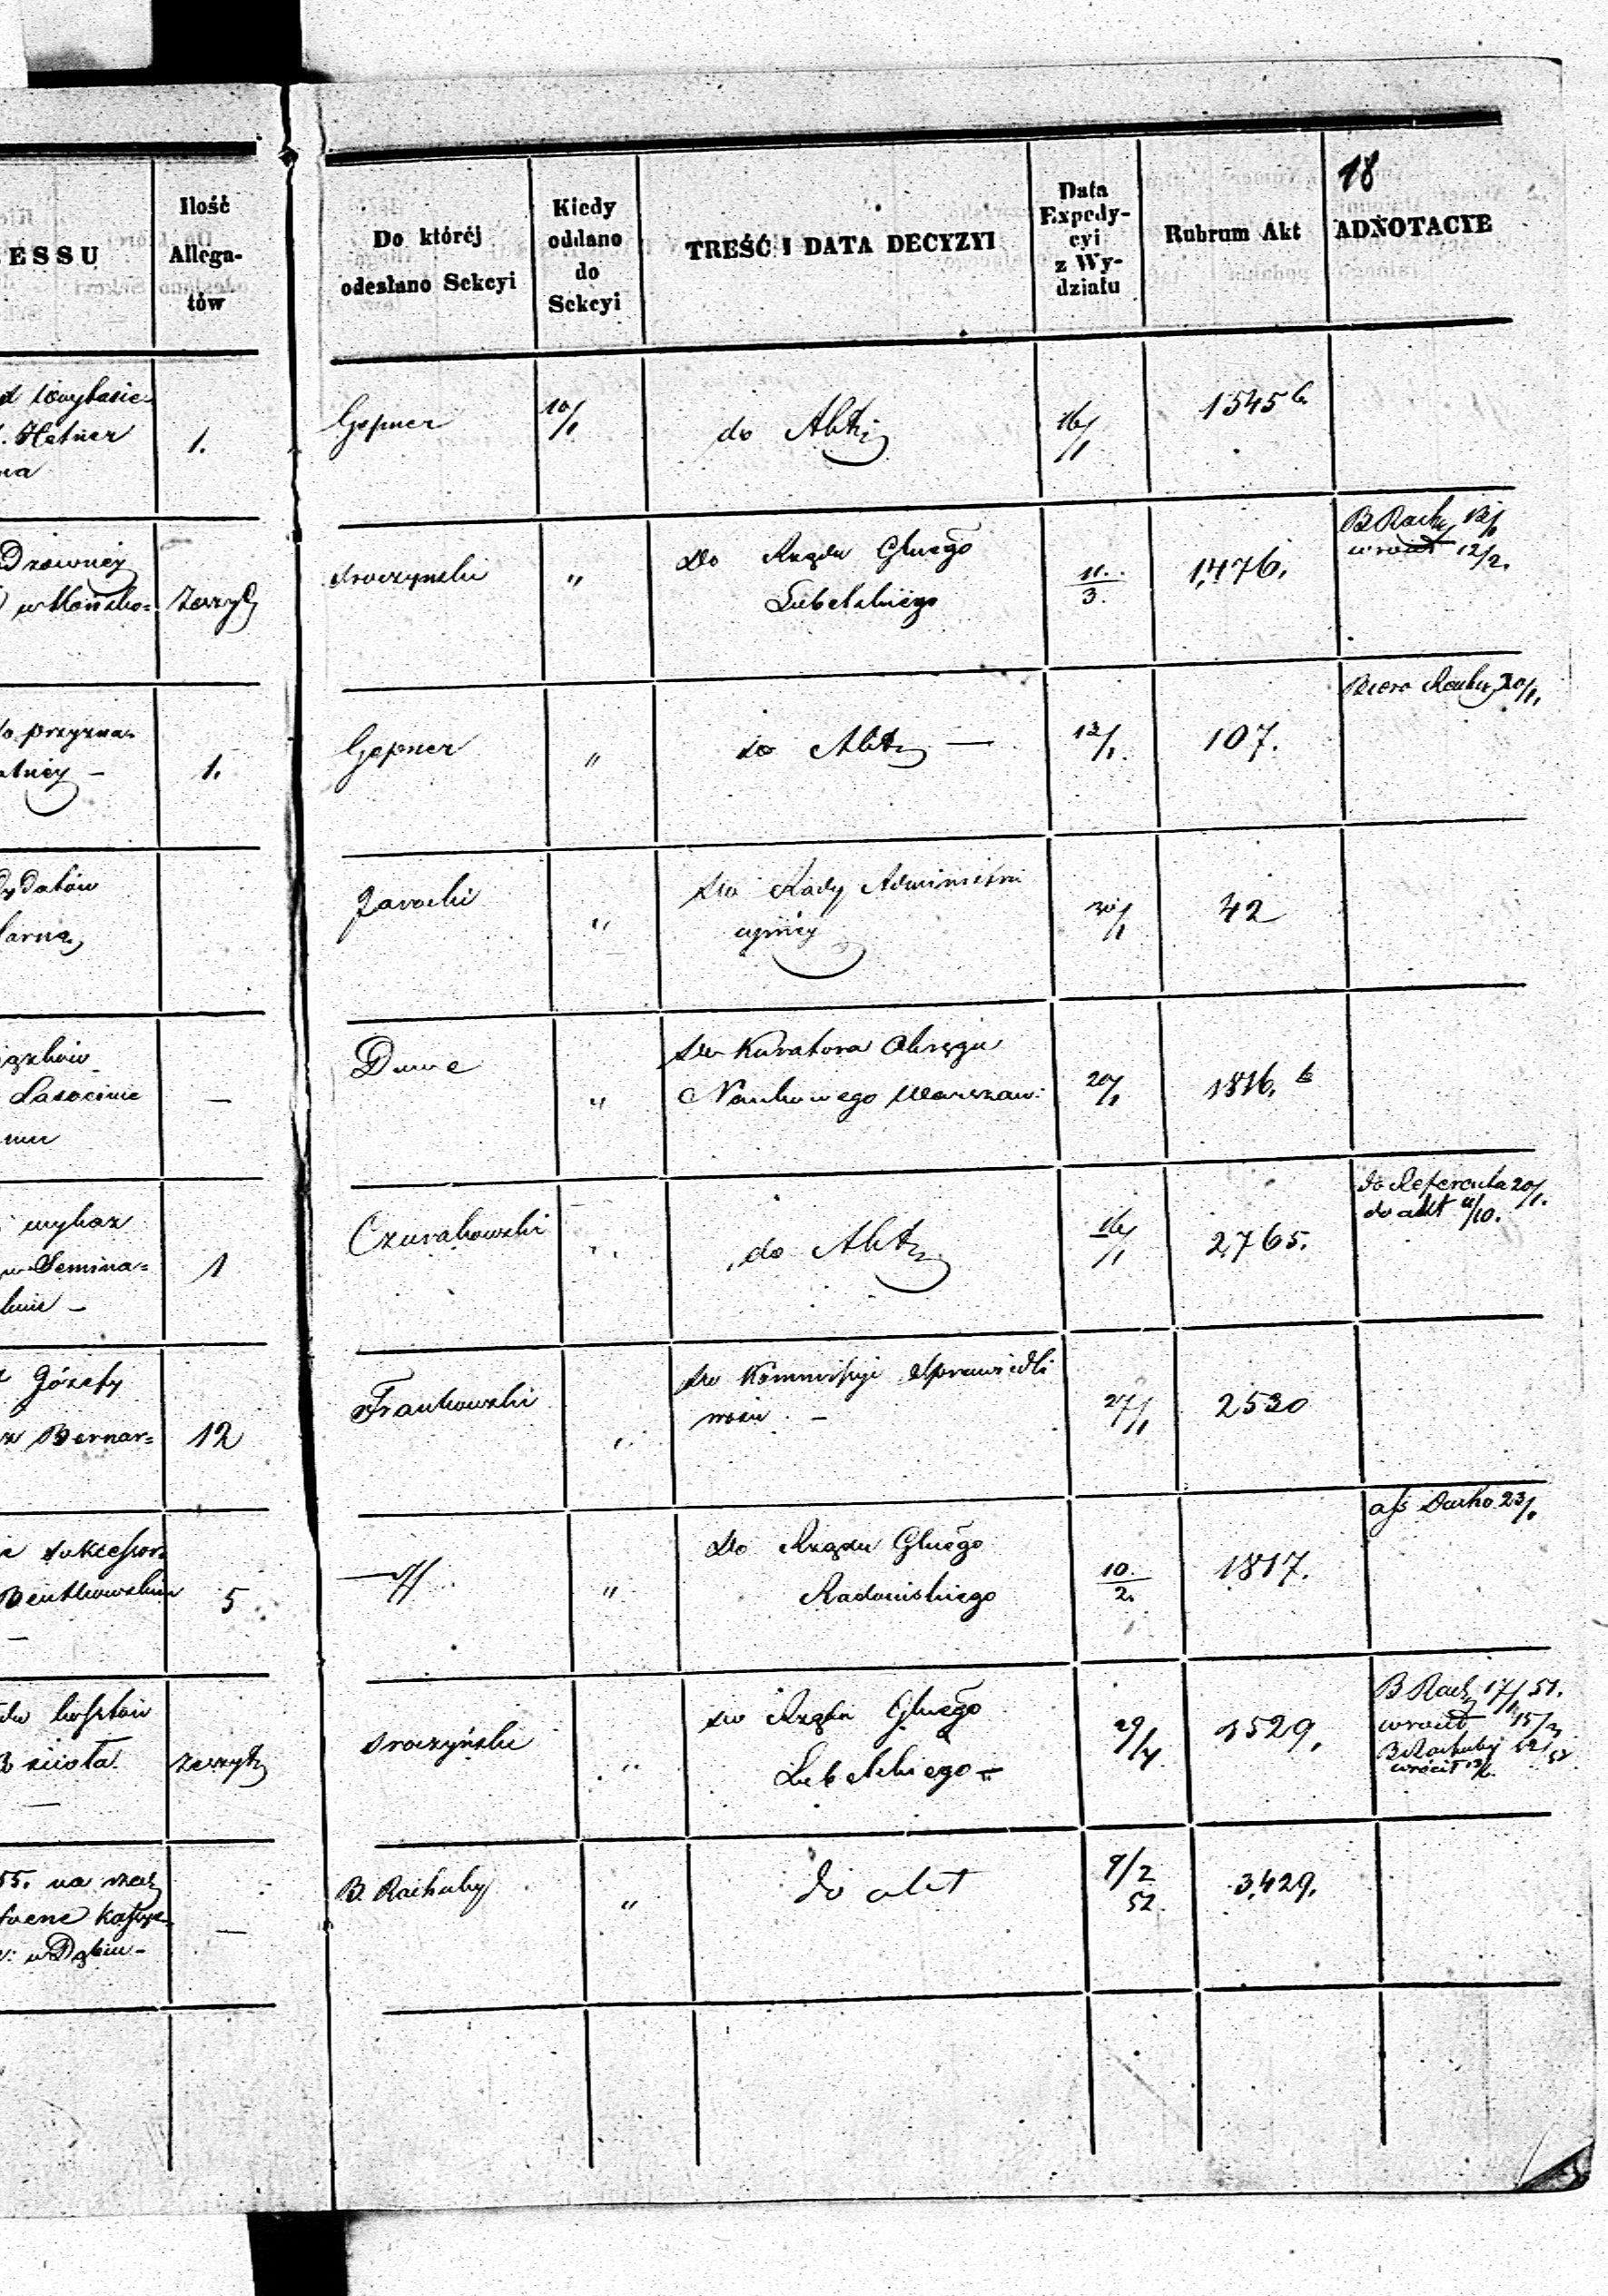 18
ESSU
Ilość
Allega-
tów
Do któréj
odesłano Sekcyi
Kiedy
oddano
do
Sekcyi
TREŚĆ I DATA DECYZYI
Data
Expedy-
cyi
z Wy-
działu
Rubrum Akt
ADNOTACYE
Hetner
1.
Gepner
10/1
do Akt
16/1
1545 b.
Drewney
Zeszyt
Sroczynski
"
Do Rządu Glnego
Lubelskiego
11./3.
1,476.
B Rach 13/1
wrócił 12/2.
do przyzna-
1.
Gepner
"
do Akt —
13/1.
107.
Bióro Rachu 20/1.
dydatów
Jarocki
"
do Rady Administra
cyjnéy
30/1
42
—
Dune
"
do Kuratora Okręgu
Naukowego Warszaw:
20/1
1816. b
wykaz
w Semina=
1
Czurakowski
"
do Akt
16/1
2,765.
do Referenta 20/1.
do akt 11/10.
Józefy
z Bernar=
12
Frankowski
"
do Kommissyi Sprawiedli
wości —
27/1
2530
sukcessor.
Bentkowskim
5
"
"
Do Rządu Glnego
Radomskiego
10./2.
1817.
ass Darho 23/1.
kosztów
Zeszyt
Sroczyński
"
do Rządu Glnego
Lubelskiego
29/4
1529.
B Rach 17/1 51.
wrócił 15/3
B Rachuby
wrócił
55. na
w Dąbiu —
—
B. Rachuby
"
do akt
9/2
52.
3,429.